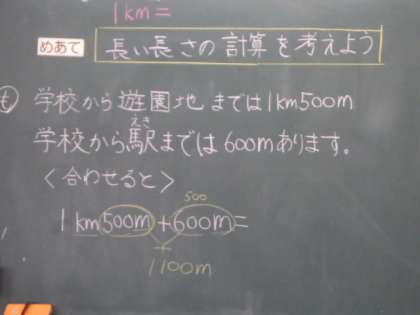 1km=
めあて 長い長さの計算を考えよう
も 学校から遊園地までは1km500m
えき
学校から駅までは600mあります。
<合わせると>
500
1km500m+600m=
1100m